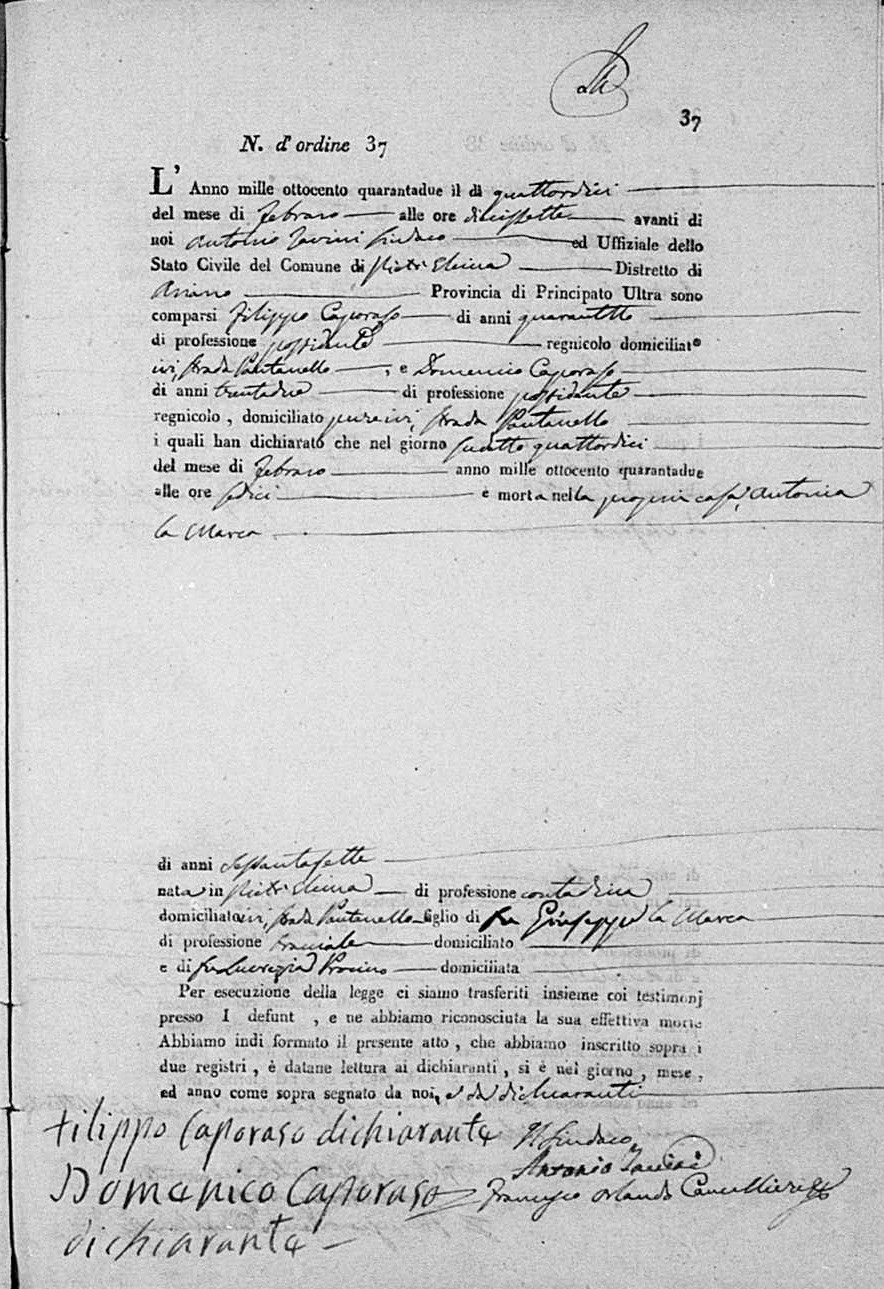 37
N. d' ordine 37
L' Anno mille ottocento quarantadue il dì quattordici
del mese di Febraro alle ore diecissette avanti di
noi Antonio Sindaco ed Uffiziale dello
Stato Civile del Comune di Pietr'Elcina Distretto di
Ariano Provincia di Principato Ultra sono
comparsi Filippo Caporaso di anni
di professione possidente regnicolo domiciliato
ivi, strada Pantanello, e Domenico Caporaso
di anni trentadue di professione possidente
regnicolo, domiciliato pure ivi, strada Pantanello
i quali han dichiarato che nel giorno quattordici
del mese di Febraro anno mille ottocento quarantadue
alle ore sedici è morta nella propria casa, Antonia
la Marca
di anni settantasette
nata in Pietr'Elcina di professione contadina
domiciliato ivi, strada Pantanello figlio di fu Giuseppe la Marca
di professione bracciale domiciliato
e di fu Lucrezia domiciliata
Per esecuzione della legge ci siamo trasferiti insieme coi testimonj
presso l defunt , e ne abbiamo riconosciuta la sua effettiva morte
Abbiamo indi formato il presente atto, che abbiamo inscritto sopra i
due registri, è datane lettura ai dichiaranti, si è nel giorno, mese,
ed anno come sopra segnato da noi, e da dichiaranti
Filippo Caporaso dichiarante
Il Sindaco
Antonio
Domenico Caporaso
Francesco Orlando Cancelliere
dichiarante